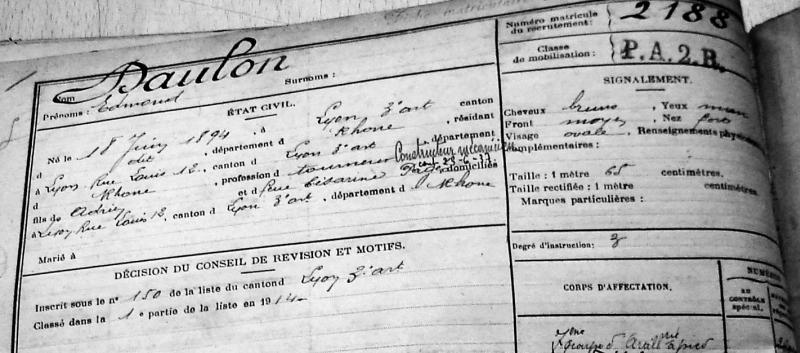 Daulon
Nom
Prénoms : Edmond
Surnoms :
ÉTAT CIVIL.
Né le 18 Juin 1894, à Lyon 3e art canton
d dit, département d Rhône, résidant
à Lyon Rue Louis 12, canton d Lyon 3e art département
d Rhône, profession d tourneur Constructeur mécanicien
fils de et d domiciliés
à Lyon Rue Louis 12, canton d Lyon 3e art, département d Rhône
Marié à
DÉCISION DU CONSEIL DE REVISION ET MOTIFS.
Inscrit sous le n° 150 de la liste du canton d Lyon 3e art
Classé dans la 1e partie de la liste en 1914
Numéro matricule
du recrutement : 2188
Classe
de mobilisation : P.A.2.R.
SIGNALEMENT.
Cheveux bruns, Yeux
Front moyen, Nez fort
Visage ovale, Renseignements
complémentaires :
Taille : 1 mètre 65 centimètres.
Taille rectifiée : 1 mètre centimètres
Marques particulières :
Degré d'instruction : 3
CORPS D'AFFECTATION.
NUMÉROS
AU
CONTRÔLE
spécial.